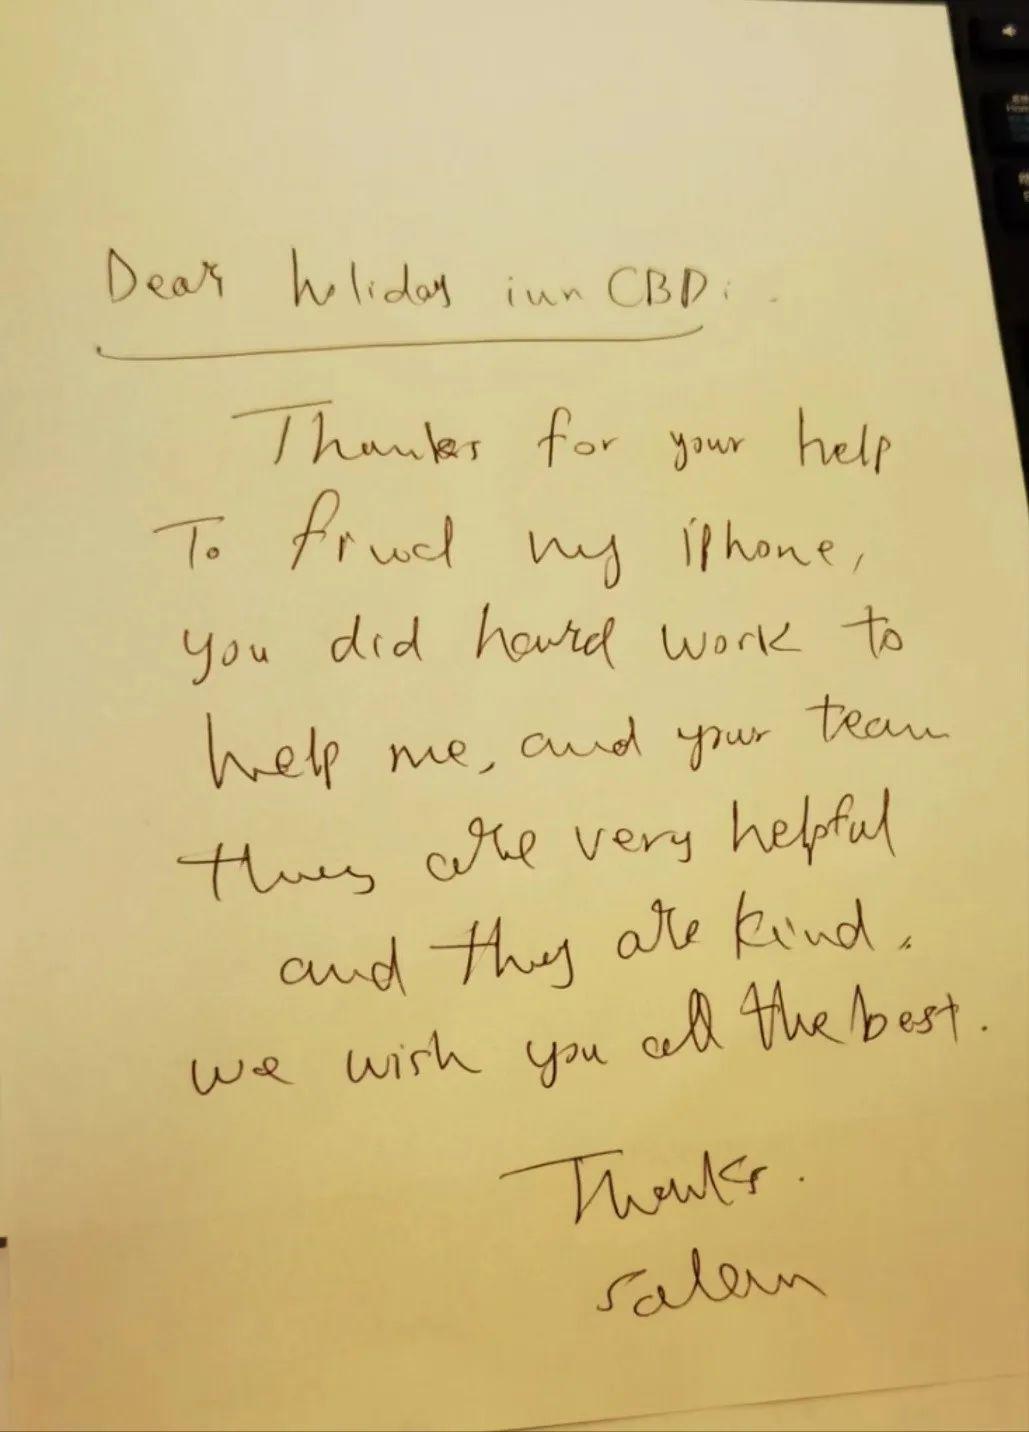 Dear holiday inn CBD:
Thanks for your help
To find my iphone,
you did hard work to
help me, and your team
they are very helpful
and they are kind.
we wish you all the best.
Thanks.
salem